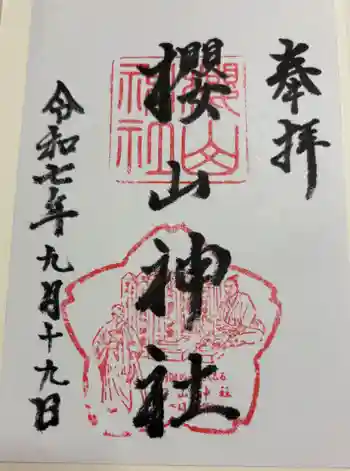 奉拝
櫻山神社
令和七年九月十九日
櫻山
神社